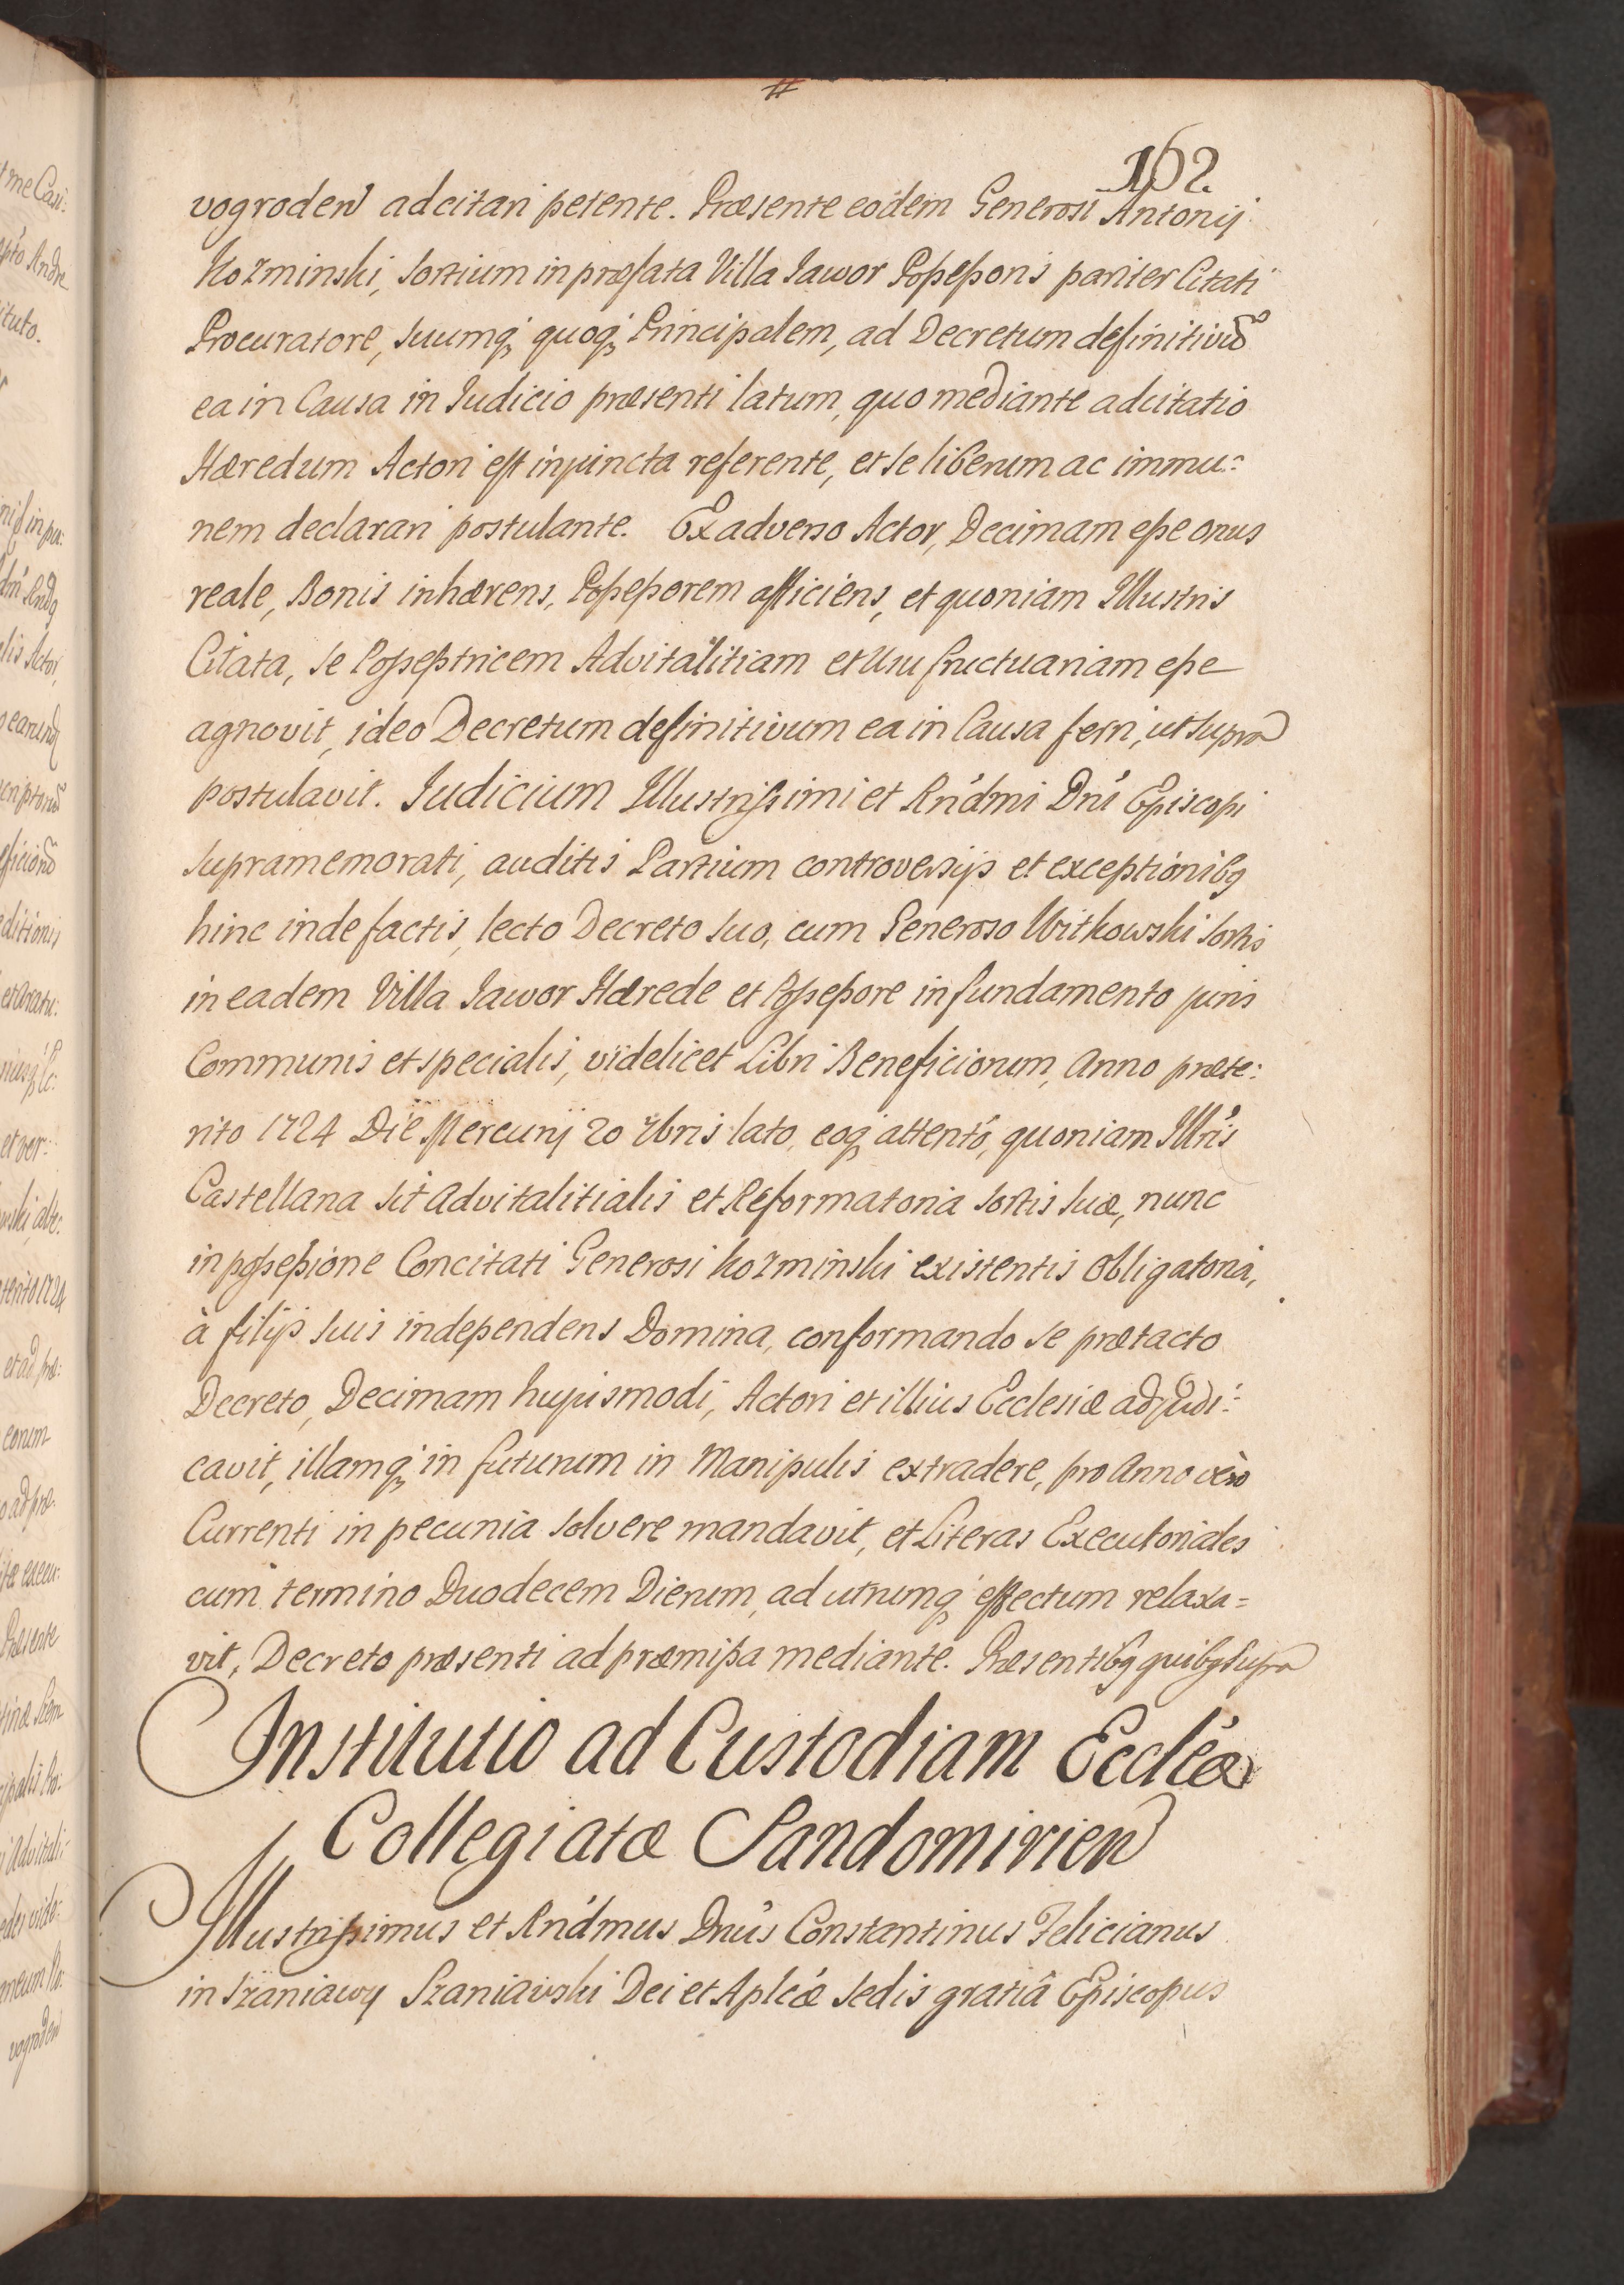 162.
vogroden adcitari petente. Præsente eodem Generosi Antonij
Kozminski, Sortium in præfata Villa Jawor Possessoris pariter Citati
Procuratore, suumq; quoq; Principalem, ad Decretum definitivũ
ea in Causa in Iudicio præsenti latum, quo mediante adcitatio
Hæredum Actori est injuncta referente, et se liberum ac immu:
nem declarari postulante. Ex adverso Actor, Decimam esse onus
reale, Bonis inhærens, Possessorem afficiens, et quoniam Illustris
Citata, se Possestricem Advitalitiam et Usufructuariam esse
agnovit, ideo Decretum definitivum ea in Causa ferri, ut supra
postulavit. Judicium Illustrissimi et Rńdmi Dńi Episcopi
supramemorati, auditis Partium controversijs et exceptionibq
hinc inde factis, lecto Decreto suo, cum Generoso Witkowski sortis
in eadem Villa Jawor Hærede et Possessore in fundamento juris
Communis et specialis, videlicet Libri Beneficiorum, Anno præte:
rito 1724 Die Mercurij 20 Xbris lato, eoq; attentó, quoniam Illŕis
Castellana sit Advitalitialis et Reformatoria sortis suæ, nunc
in possessione Concitati Generosi Kozminski existentis obligatoria,
à filijs suis independens Domina, conformando se prætacto
Decreto, Decimam hujusmodi, Actori et illius Ecclesiæ adjudi:
cavit, illamq; in futurum in Manipulis extradere, pro Anno vèro
Currenti in pecunia solvere mandavit, et Literas Executoriales
cum termino Duodecem Dierum, ad utrumq; effectum relaxa=
vit, Decreto præsenti ad præmissa mediante. Præsentibq quibq supra
Institutio ad Custodiam Eccléæ
Collegiatæ Sandomirien
Illustrissimus et Rńdmus Dnús Constantinus Felicianus
in Szaniawy Szaniawski Dei et Apleǽ Sedis gratiâ Episcopus